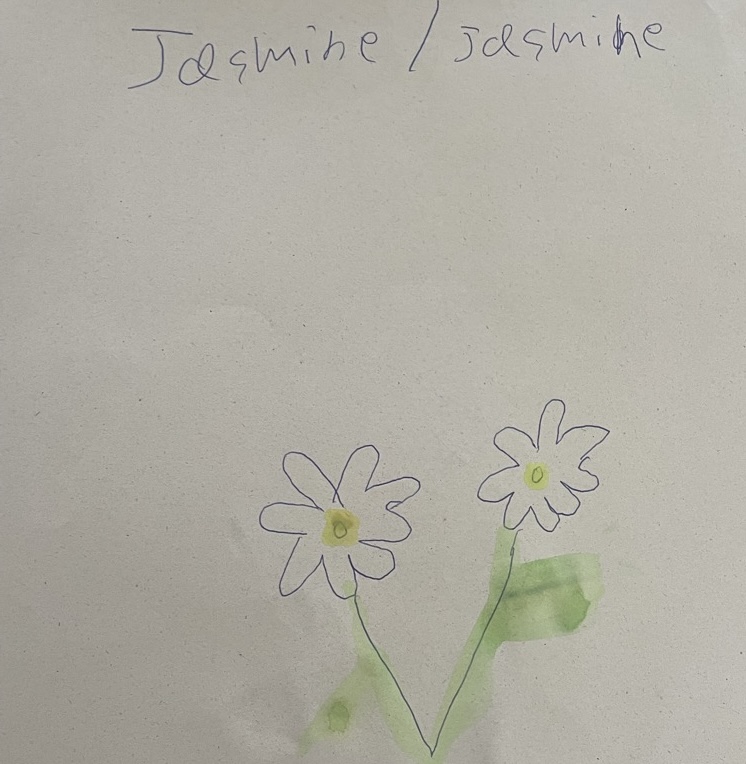 Jasmine / Jasmine